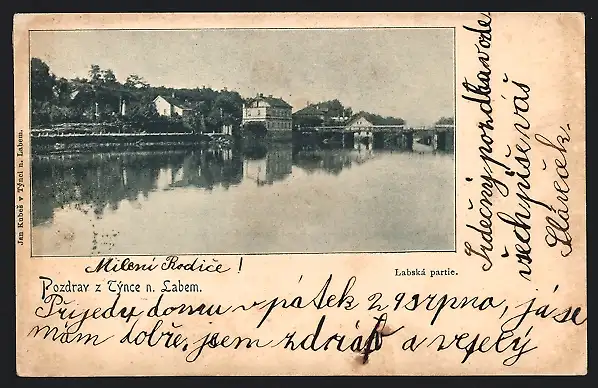 Jan Kubeš v Týnci n. Labem.
Labská partie.
Pozdrav z Týnce n. Labem.
Milení Rodiče!
Přijedu domu v pátek 29 srpna, já se
mám dobře, jsem zdráv a veselý
Srdečný pozdrav ode
všech píše váš
Slávěček.